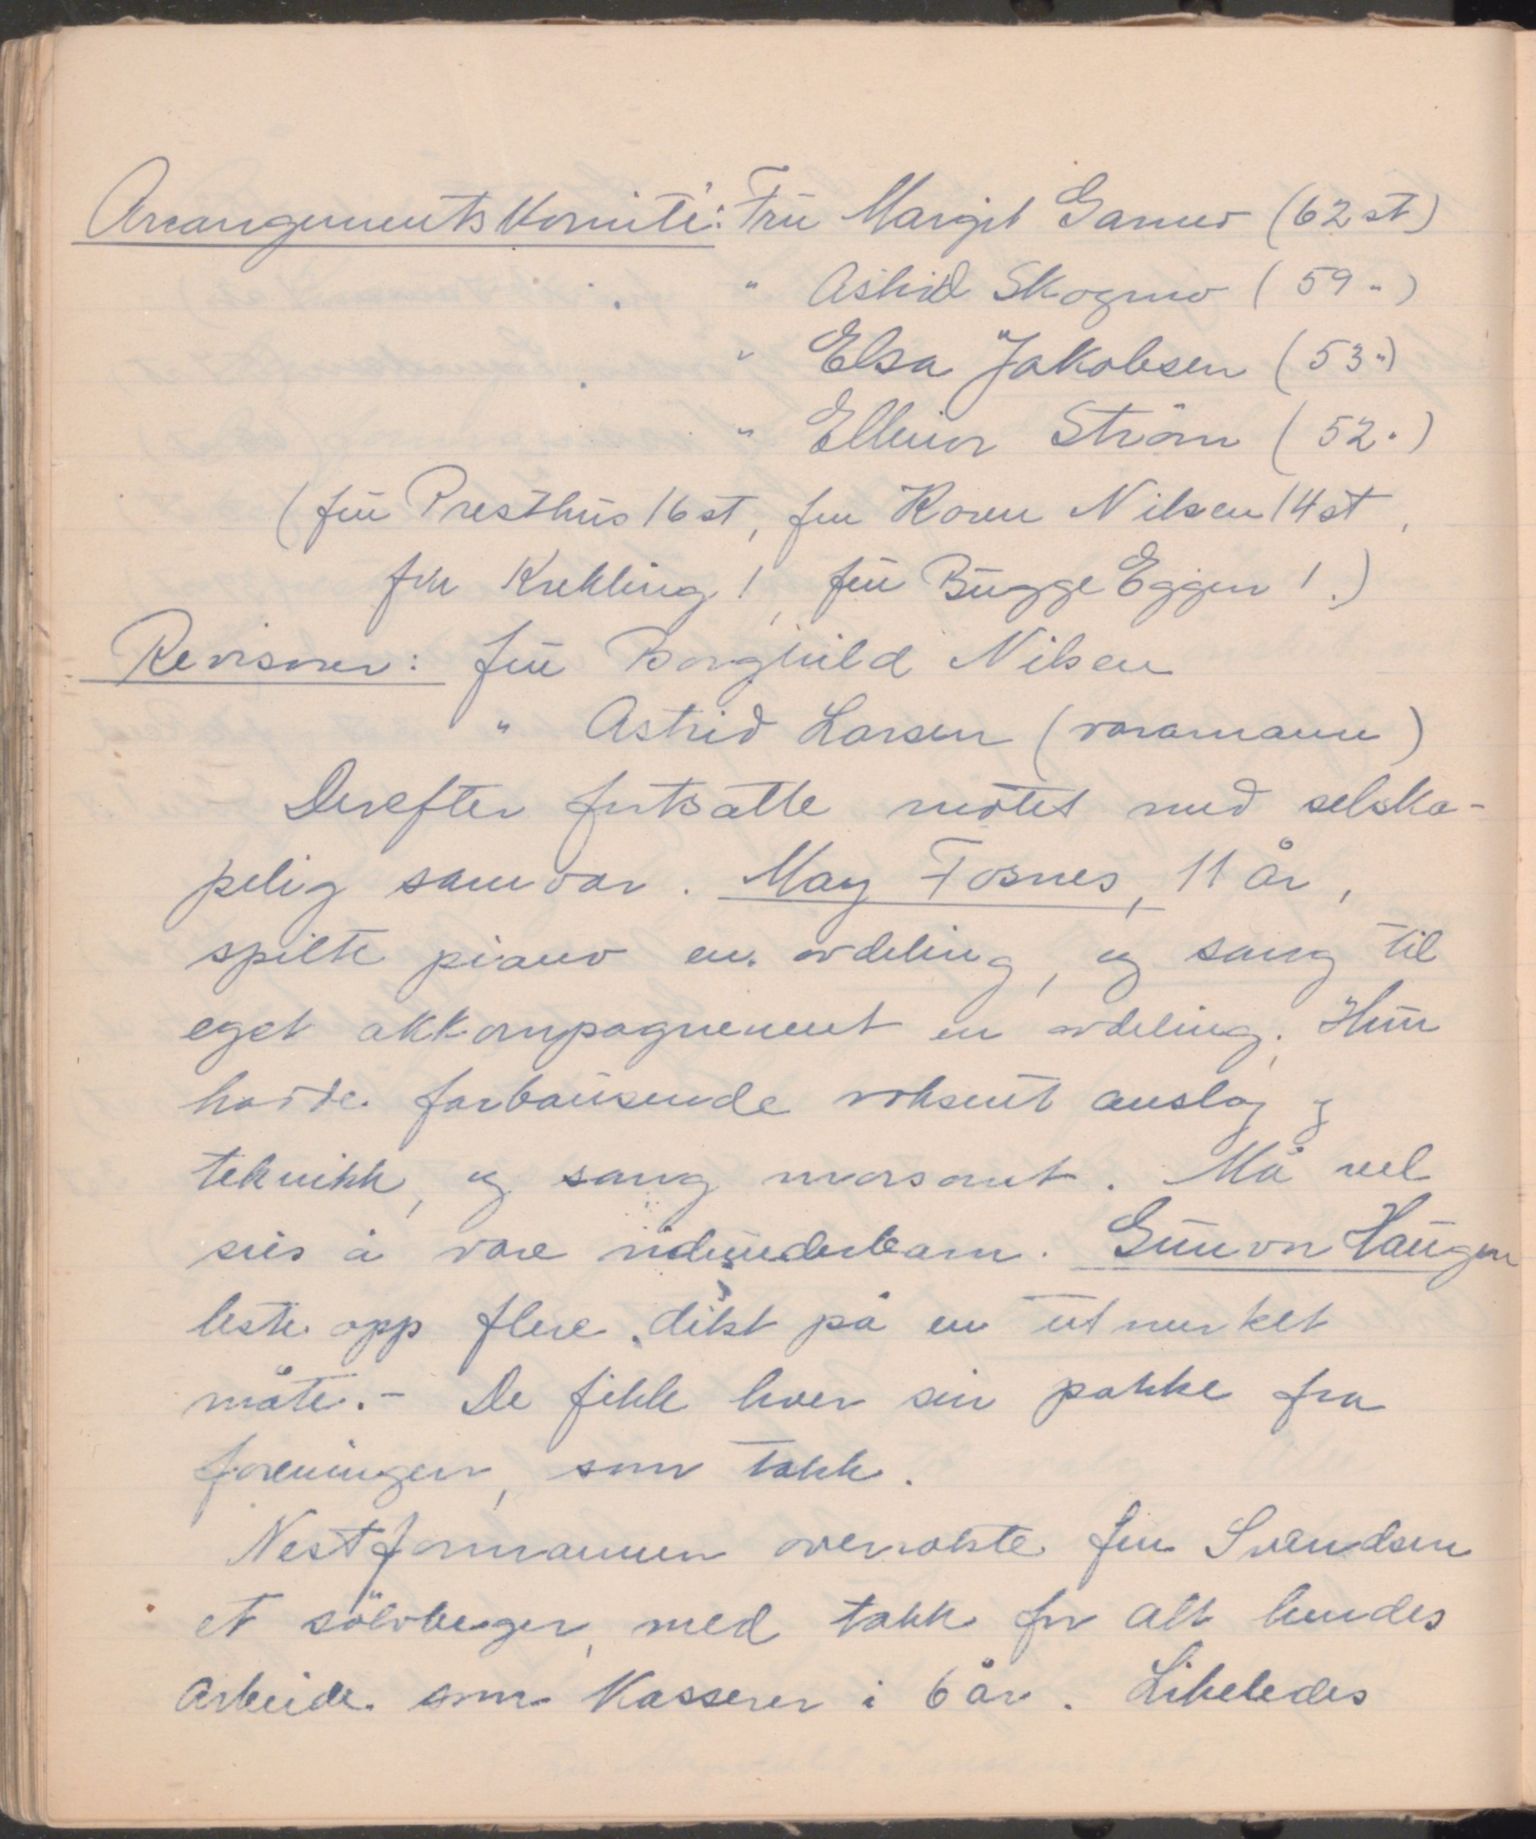 Arrangementskomité: Fru Margit Garmo (62 st)
" Astrid Skogmo (59 ")
" Elsa Jakobsen (53 ")
" Ellinor Ström (52 ")
(fru Presthus 16 st, fru Koren Nilsen 14 st,
fru Krekling 1, fru Bugge Eggen 1.)
Revisorer: fru Borghild Nilsen
" Astrid Larsen (varamann)
Derefter fortsatte mötet med selska-
pelig samvær. May Fosnes, 11 år,
spilte piano en avdeling, og sang til
eget akkompagnement en avdeling. Hun
hadde forbausende voksent anslag og
teknikk, og sang morsomt. Må vel
sies å være vidunderbarn. Gunvor Haugen
leste opp flere dikt på en utmerket
måte. - De fikk hver sin pakke fra
foreningen, som takk.
Nestformannen overrakte fru Svendsen
et sölvbeger, med takk for alt hendes
arbeide som kasserer i 6 år. Likeledes